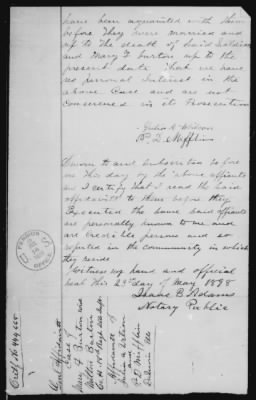 have been acquainted with them
before they were married and
up to the death of said Soldier
and Mary F Burton up to the
present date that we have
no personal interest in the
above Case and are not
Concerned in its Prosecution
Julia A Wilson
P. D. Mifflin
Sworn to and subscribed before
me this day by the above affiants
and I certify that I read the said
affidavit to them before they
Executed the same said affiants
are personally known to me and
are credible persons and so
reputed in the community in which
they reside
Witness my hand and official
seal this 23rd day of May 1898
Isaac B. Adams
Notary Public
U S PENSION OFFICE
Ctf. No 449,665
Genl Affidavit
Case of
Mary F Burton Wid
Burton
Affidavits of
Julia A Wilson
and
P. D. Mifflin